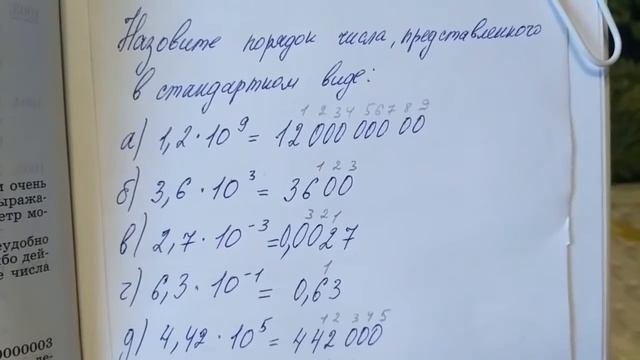 Назовите порядок числа, представленного
в стандартном виде:
1 2 3 4 5 6 7 8 9
а) 1,2 · 10⁹ = 12 000 000 00
1 2 3
б) 3,6 · 10³ = 3600
3 2 1
в) 2,7 · 10⁻³ = 0,0027
1
г) 6,3 · 10⁻¹ = 0,63
1 2 3 4 5
д) 4,42 · 10⁵ = 442 000
очень
ыража-
етр мо-
еудобно
бо дей-
е числа
0000003